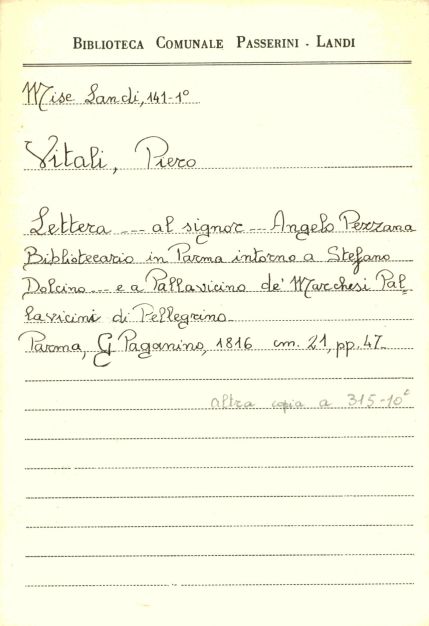 BIBLIOTECA COMUNALE PASSERINI - LANDI
Misc Landi, 141-1°
Vitali, Piero
Lettera --- al signor --- Angelo Pezzana
Bibliotecario in Parma intorno a Stefano
Dolcino --- e a Pallavicino de' Marchesi Pal-
lavicini di Pellegrino
Parma, G Paganino, 1816 cm. 21, pp. 47
altra copia a 315-10°